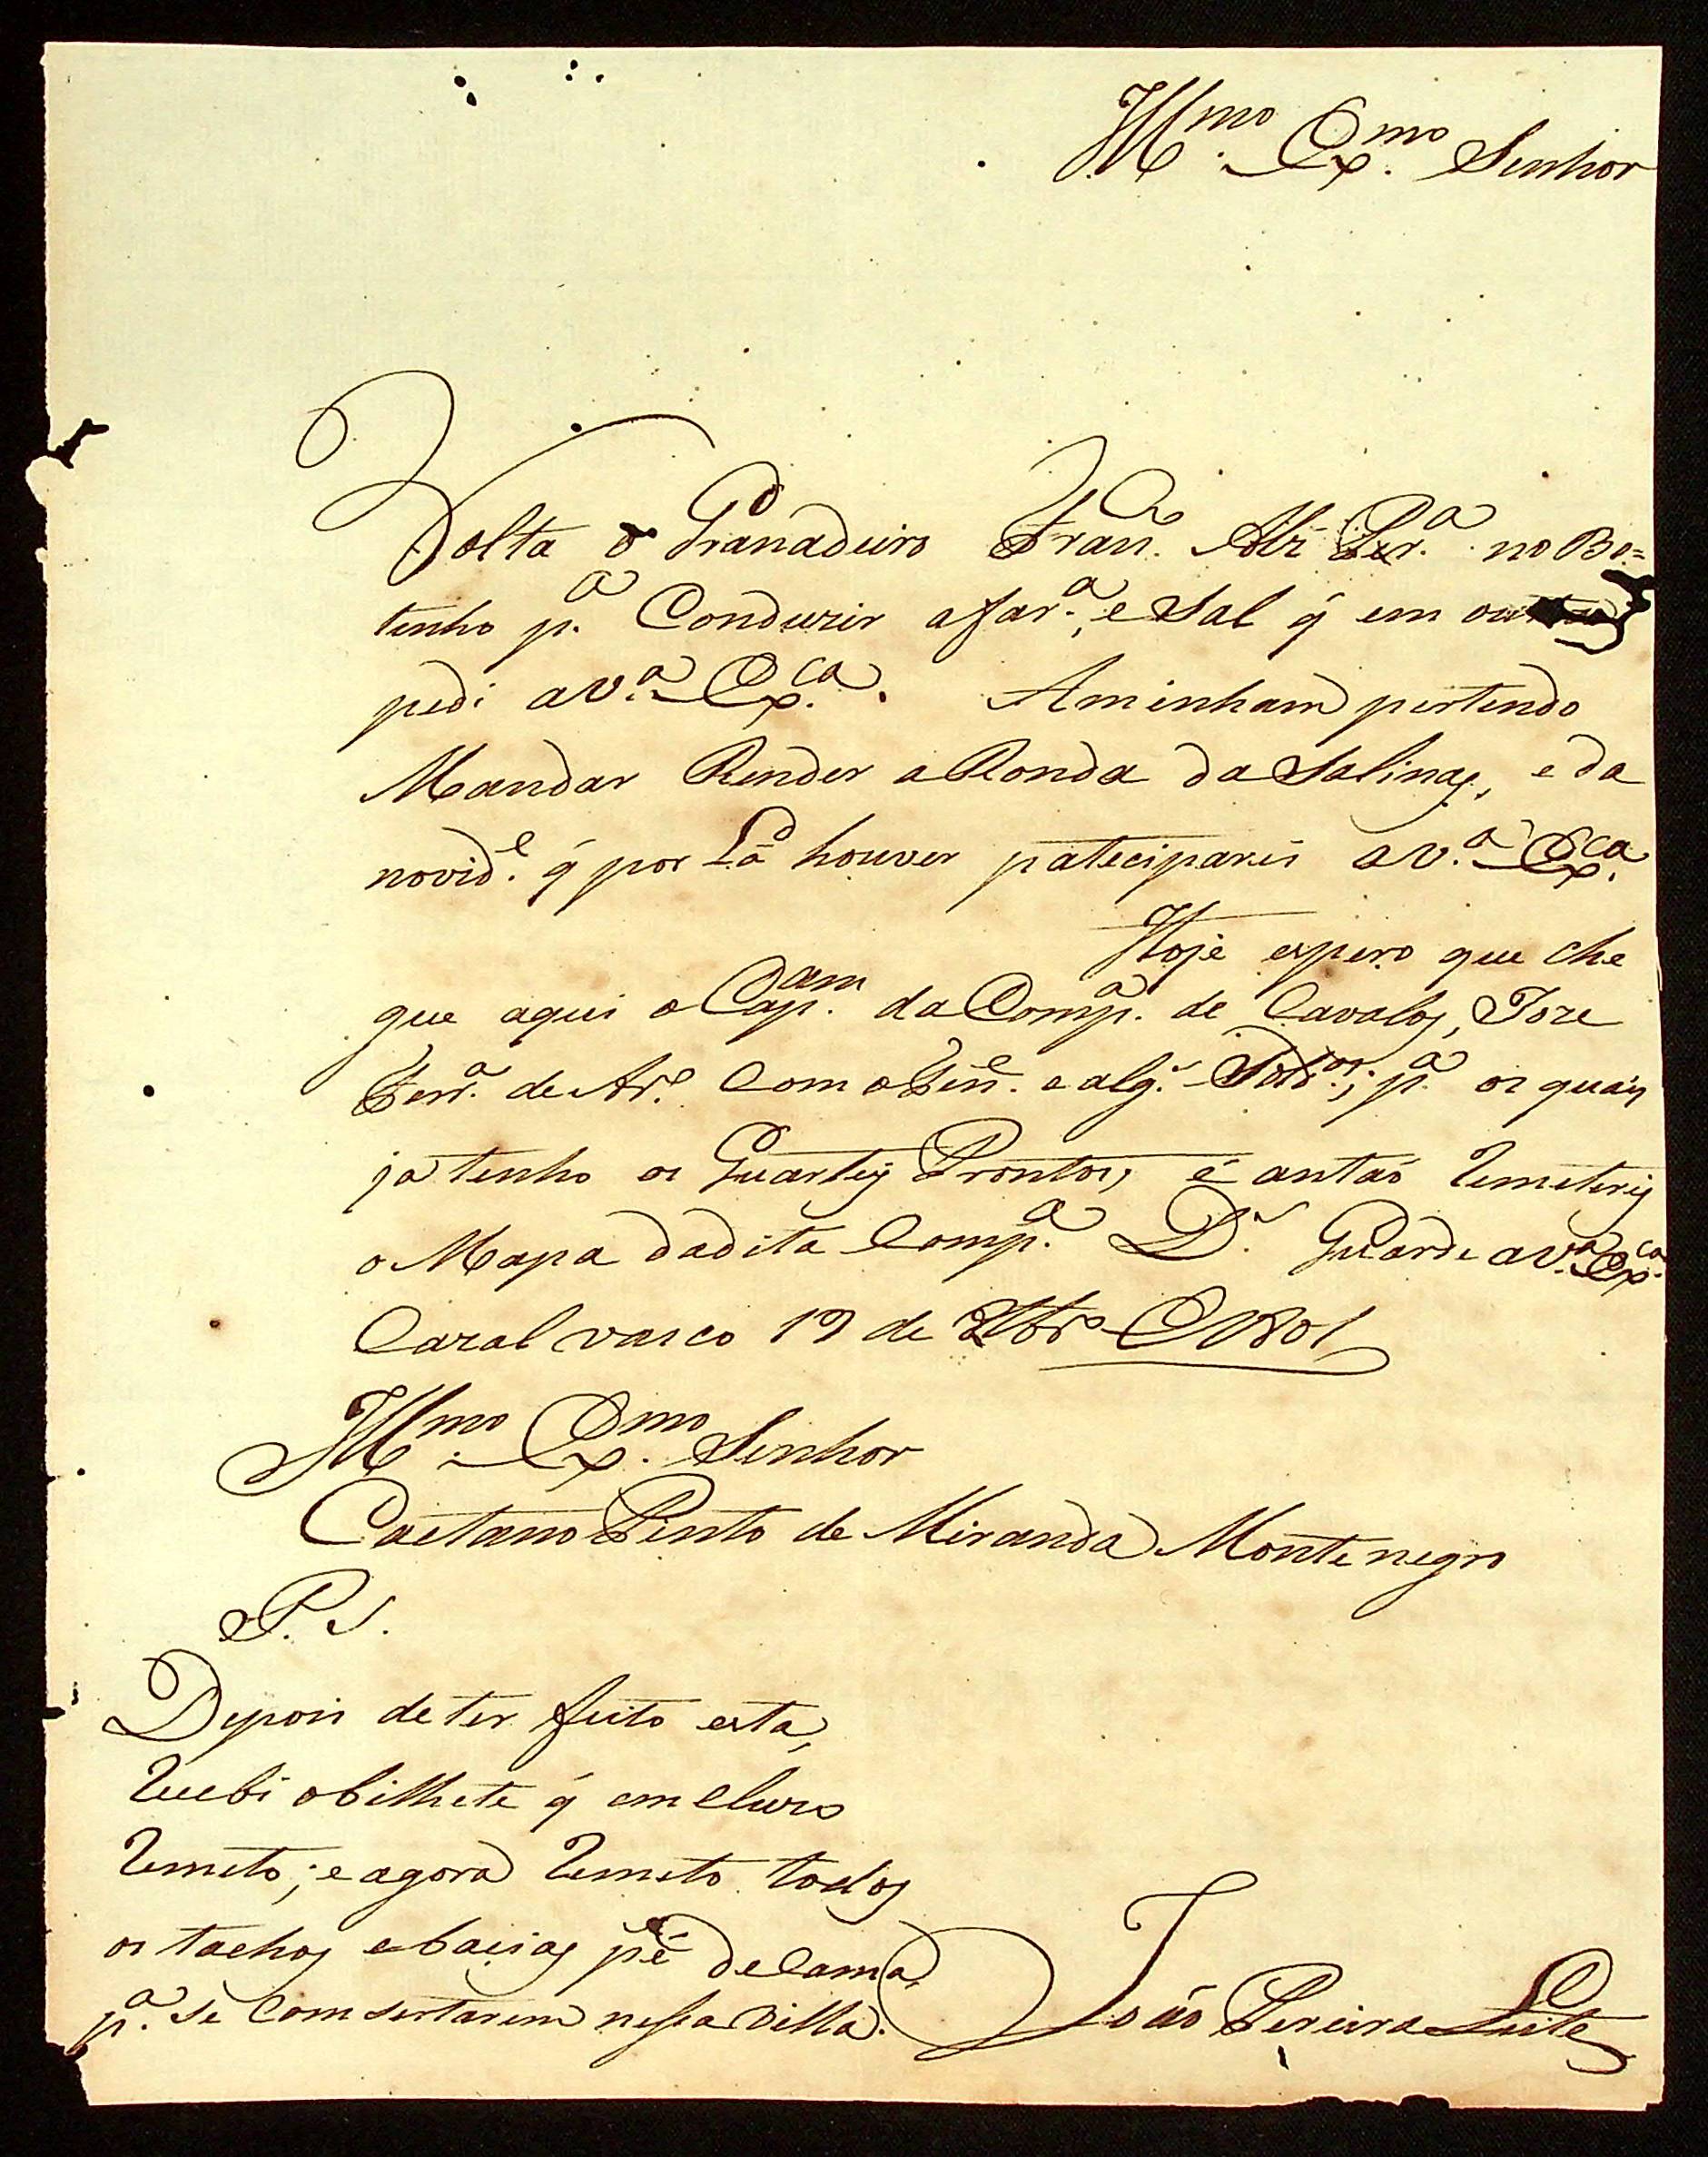 Illmo. Exmo. Senhor
Volta o Granadeiro Fran.co Alz' Per.a no Bo=
tenho p.a Conduzir a far.a, e Sal q̃ em
pedi a V.a Ex.ca. Aminham pertendo
Mandar Render a Ronda da Salinas, e da
novid.e q̃ por Lá houver pateciparei a V.a Ex.ca
Hoje espero que che
gue aqui o Cap.am da Comp.a de Cavalos, Joze
de Ar.o Com o Ten.e e alg.s Sold.os; p.a os quais
ja tenho os Quarteis Prontos, é antaõ Remeterei
o Mapa da dita Comp.a D.s Guarde a V.a Ex.ca
Cazal vasco 19 de 1801
Illmo. Exmo. Senhor
Caetano Pinto de Miranda Montenegro
P. S.
Depois de ter feito esta,
Recebi o bilhete q̃ emcluzo
Remeto; e agora Remeto todos
os tachos e bacias pé de Cama,
p.a se Comsertarem nessa Villa.
João Pereira Leite